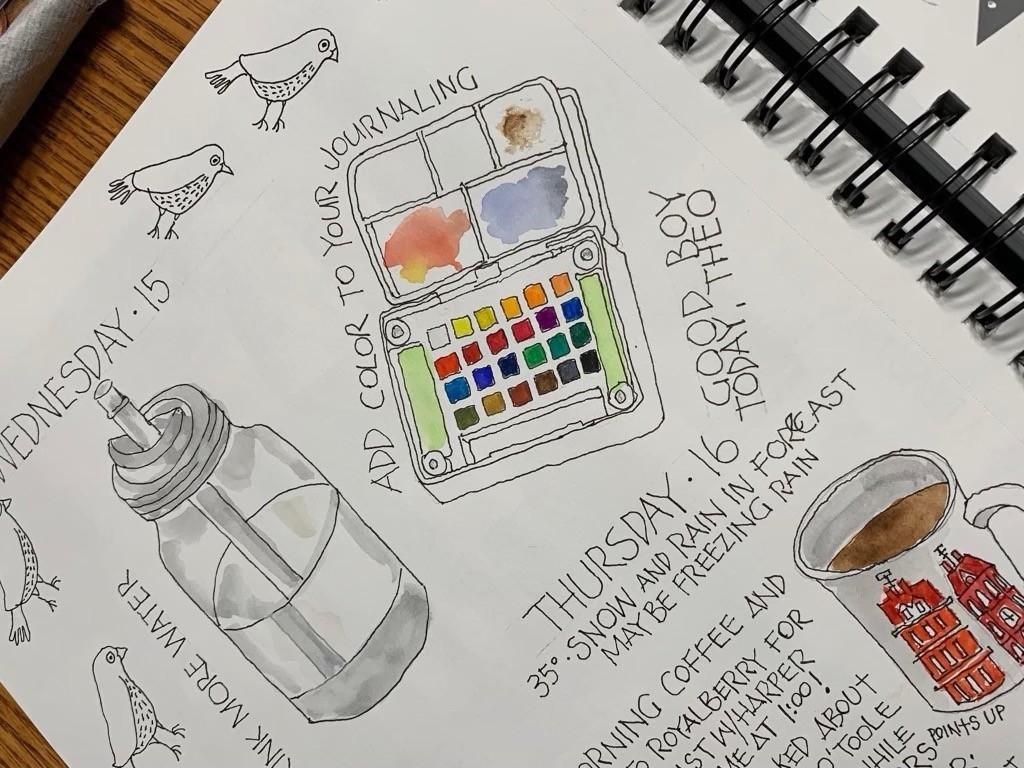 WEDNESDAY · 15
INK MORE WATER
ADD COLOR TO YOUR JOURNALING
GOOD BOY
TODAY, THEO
THURSDAY · 16
35° · SNOW AND RAIN IN FORECAST
MAY BE FREEZING RAIN
ORNING COFFEE AND
ROYALBERRY FOR
AST W/HARPER
ME AT 1:00!
KED ABOUT
O'TOOLE
HILE
POINTS UP